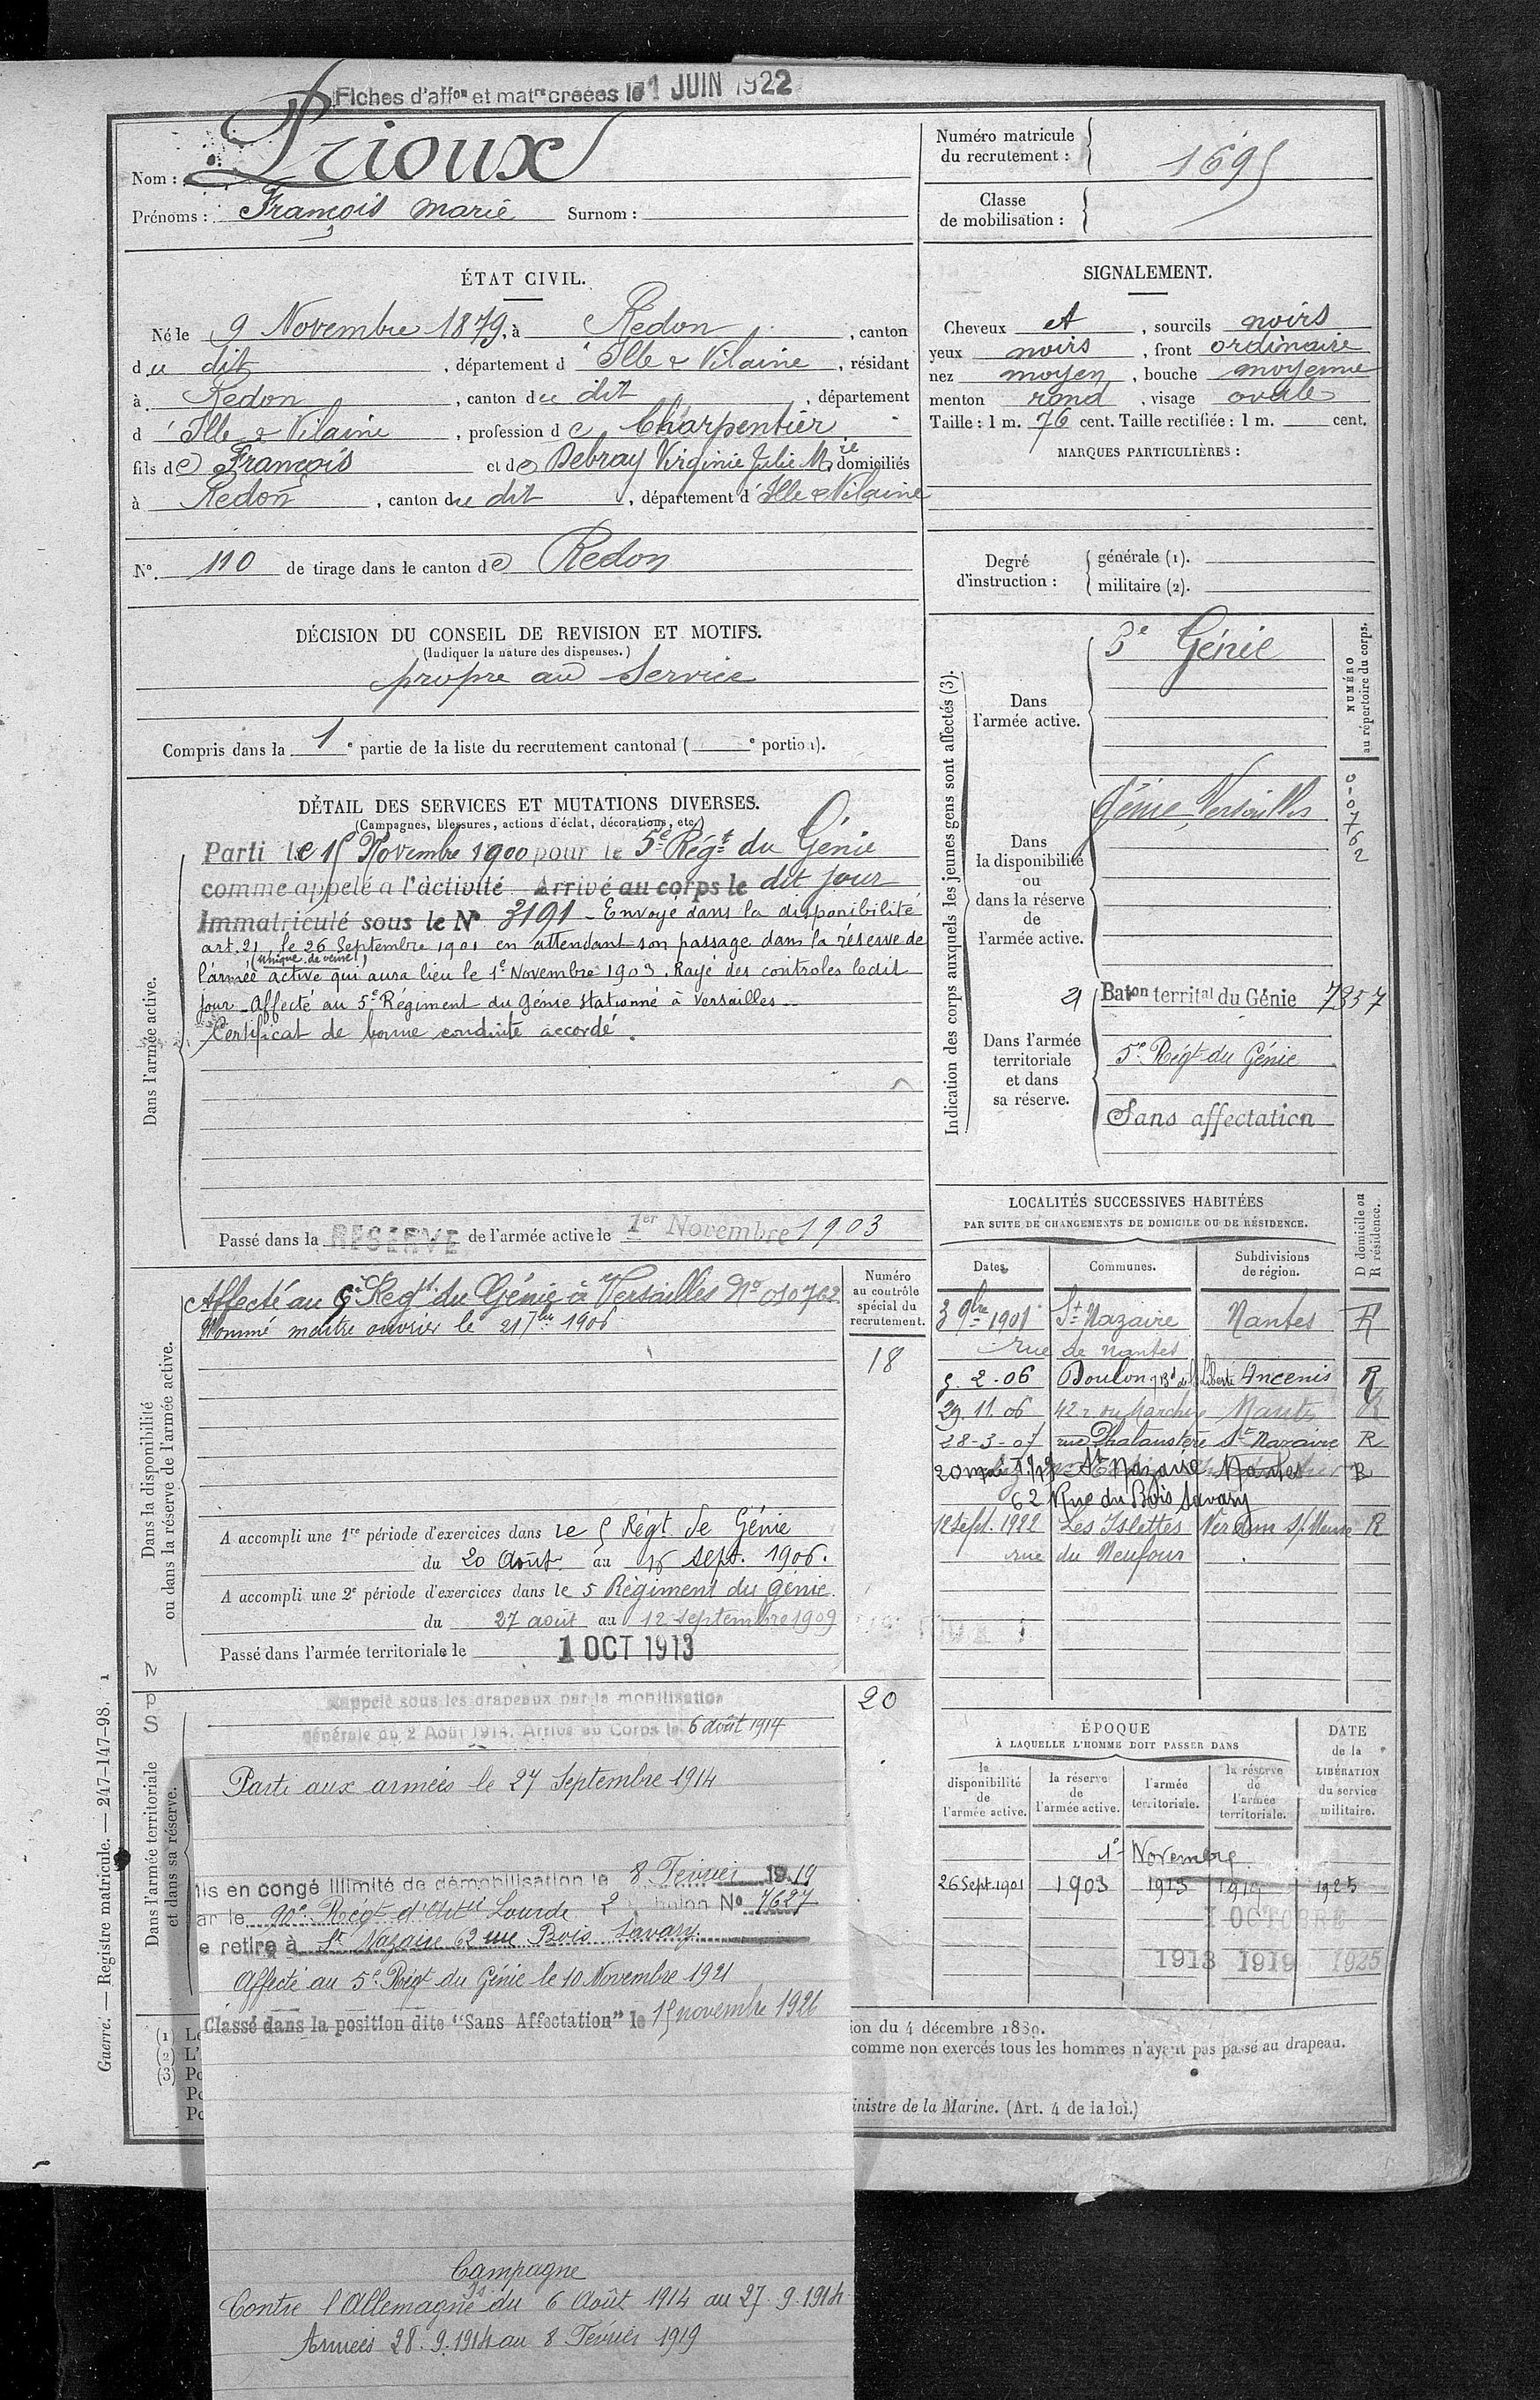 Fiches d'affon et matre créées le 1 JUIN 1922
Nom : Prioux
Prénoms : François Marie Surnom :
Numéro matricule du recrutement : 1695
Classe de mobilisation :
ÉTAT CIVIL.
Né le 9 Novembre 1879, à Redon, canton
du dit, département d'Ille & Vilaine, résidant
à Redon, canton du dit, département
d'Ille & Vilaine, profession de Charpentier
fils de François et de Debray Virginie Julie Mie, domiciliés
à Redon, canton du dit, département d'Ille & Vilaine
N° 110 de tirage dans le canton de Redon
SIGNALEMENT.
Cheveux et, sourcils noirs
yeux noirs, front ordinaire
nez moyen, bouche moyenne
menton rond, visage ovale
Taille : 1 m. 76 cent. Taille rectifiée : 1 m. cent.
MARQUES PARTICULIÈRES :
Degré d'instruction : générale (1).
militaire (2).
DÉCISION DU CONSEIL DE REVISION ET MOTIFS.
(Indiquer la nature des dispenses.)
propre au Service
Compris dans la 1e partie de la liste du recrutement cantonal ( e portion).
DÉTAIL DES SERVICES ET MUTATIONS DIVERSES.
(Campagnes, blessures, actions d'éclat, décorations, etc.)
Dans l'armée active.
Parti le 15 Novembre 1900 pour le 5e Régt du Génie
comme appelé à l'activité Arrivé au corps le dit jour
Immatriculé sous le N° 3191 - Envoyé dans la disponibilité
art. 21, le 26 Septembre 1901 en attendant son passage dans la réserve de
(unique de veuve)
l'armée active qui aura lieu le 1e Novembre 1903. Rayé des controles ledit
jour - Affecté au 5e Régiment du Génie stationné à Versailles -
Certificat de bonne conduite accordé.
Passé dans la RÉSERVE de l'armée active le 1er Novembre 1903
Indication des corps auxquels les jeunes gens sont affectés (3).
NUMÉRO au répertoire du corps.
Dans l'armée active.
5e Génie
Dans la disponibilité ou dans la réserve de l'armée active.
Génie Versailles
0-0762
Dans l'armée territoriale et dans sa réserve.
21 Baton territal du Génie 7357
5e Régt du Génie
Sans affectation
Dans la disponibilité ou dans la réserve de l'armée active.
Affecté au 5e Regt du Génie à Versailles No 010762
Nommé maitre ouvrier le 21 7bre 1906
Numéro au contrôle spécial du recrutement.
18
A accompli une 1re période d'exercices dans le 5 Régt de Génie
du 20 Août au 16 sept. 1906.
A accompli une 2e période d'exercices dans le 5 Régiment du génie
du 27 août au 12 septembre 1909
Passé dans l'armée territoriale le 1 OCT 1913
LOCALITÉS SUCCESSIVES HABITÉES
PAR SUITE DE CHANGEMENTS DE DOMICILE OU DE RÉSIDENCE.
D domicile ou R résidence.
Dates. Communes. Subdivisions de région.
3 9bre 1901 St Nazaire Nantes R
rue de Nantes
5-2-06 Doulon 7 Bd de la Liberté Ancenis R
29.11.06 Nantes R
28-3-07 rue Phalanstère St Nazaire R
St Nazaire Nantes R
62 Rue du Bois Savary
12 Sept. 1922 Les Islettes Verdun s/ Meuse R
rue du Neufour
N P S
20
Dans l'armée territoriale et dans sa réserve.
Rappelé sous les drapeaux par la mobilisation
générale du 2 Août 1914. Arrivé au Corps le 6 août 1914
Parti aux armées le 27 Septembre 1914
is en congé illimité de démobilisation le 8 Février 1919
ar le 90e Régt d'Artie Lourde 2 N° 7627
e retire à St Nazaire 62 rue Bois Savary
Affecté au 5e Régt du Génie le 10 Novembre 1921
Classé dans la position dite "Sans Affectation" le 15 novembre 1926
ÉPOQUE
À LAQUELLE L'HOMME DOIT PASSER DANS
DATE de la LIBÉRATION du service militaire.
la disponibilité de l'armée active. la réserve de l'armée active. l'armée territoriale. la réserve de l'armée territoriale.
1er Novembre
26 Sept 1901 1903 1913 1919 1925
1 OCTOBRE
1913 1919 1925
ion du 4 décembre 1889.
comme non exercés tous les hommes n'ayant pas passé au drapeau.
inistre de la Marine. (Art. 4 de la loi.)
(1) Le
(2) L'
(3) Po
Po
Po
Guerre. — Registre matricule. — 247-147-98.
Campagne
Contre l'Allemagne du 6 Août 1914 au 27.9.1914
Armées 28.9.1914 au 8 Février 1919